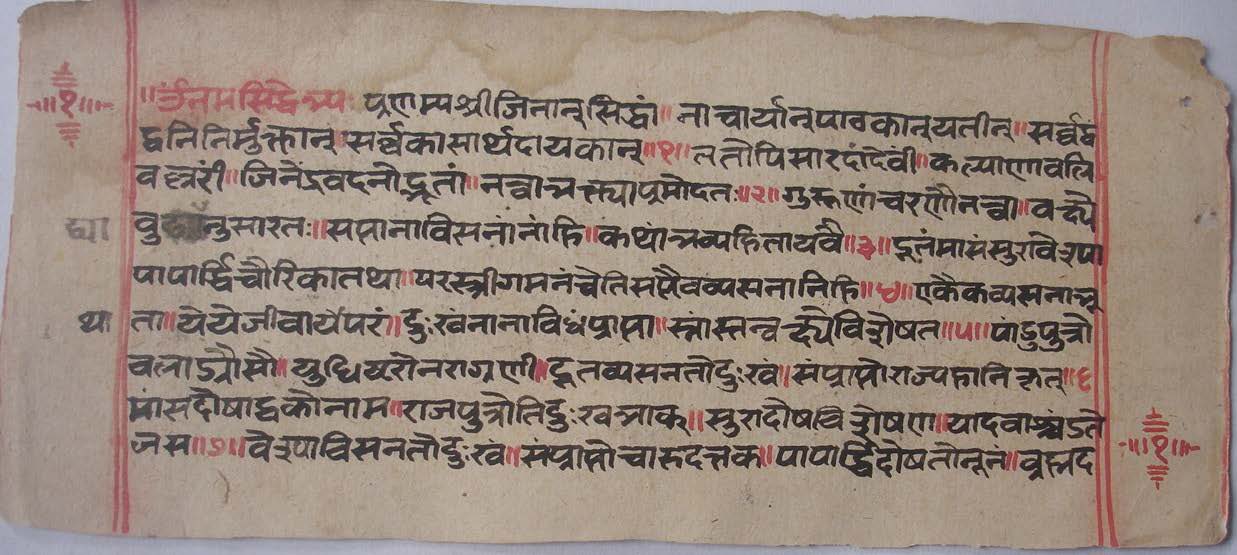 ॥१॥
॥र्उनमसिद्धेभ्यः प्रणम्यश्रीजिनान्सिद्धां॥ नाचार्यान्पाठकान्यतीन्॥ सर्व्वद्वं
द्वनिनिर्मुक्तान्॥सर्व्वकामार्थदायकान्॥१॥ततोपिसारदांदेवीं॥कल्पाणावलि
वल्लरीं॥जिनेंऽवदनोद्भूतां॥नत्वाभक्त्याप्रमोदतः॥२॥गुरूणांचरणौनत्वा॥वक्ष्ये
द्या
वुद्ध्यानुसारतः॥सप्तानाविसनांनांहि॥कथांभव्यहितायवै॥३॥द्यूतंमासंसुरावेश्या
पापार्द्धिचौरिकातथा॥परस्त्रीगमनंचेतिसप्तैवव्यसनानिहि॥४॥एकैकव्यसनाच्
था
ता॥येयेजीवार्येपरं॥दुःखंनानाविधंप्राप्ता॥स्नांस्तन्वक्ष्येविशेषत॥५॥पांडुपुत्रो
वलाज्ञौसौ॥युधिष्ठरोनराग्रणी॥द्यूतव्यसनतोदुःखं॥संप्राप्तोराज्यहानिकृत्॥६
मांसदोषाद्वकोनाम॥राजपुत्रोतिदुःखभाक्॥सुरादोषविशेषण॥यादवाश्चंऽते
जस॥७॥वेश्याविसनतोदुःखं॥संप्राप्तोचारुदत्तक॥पापार्द्धिदोषतोनूनं॥व्रह्मद
॥१॥